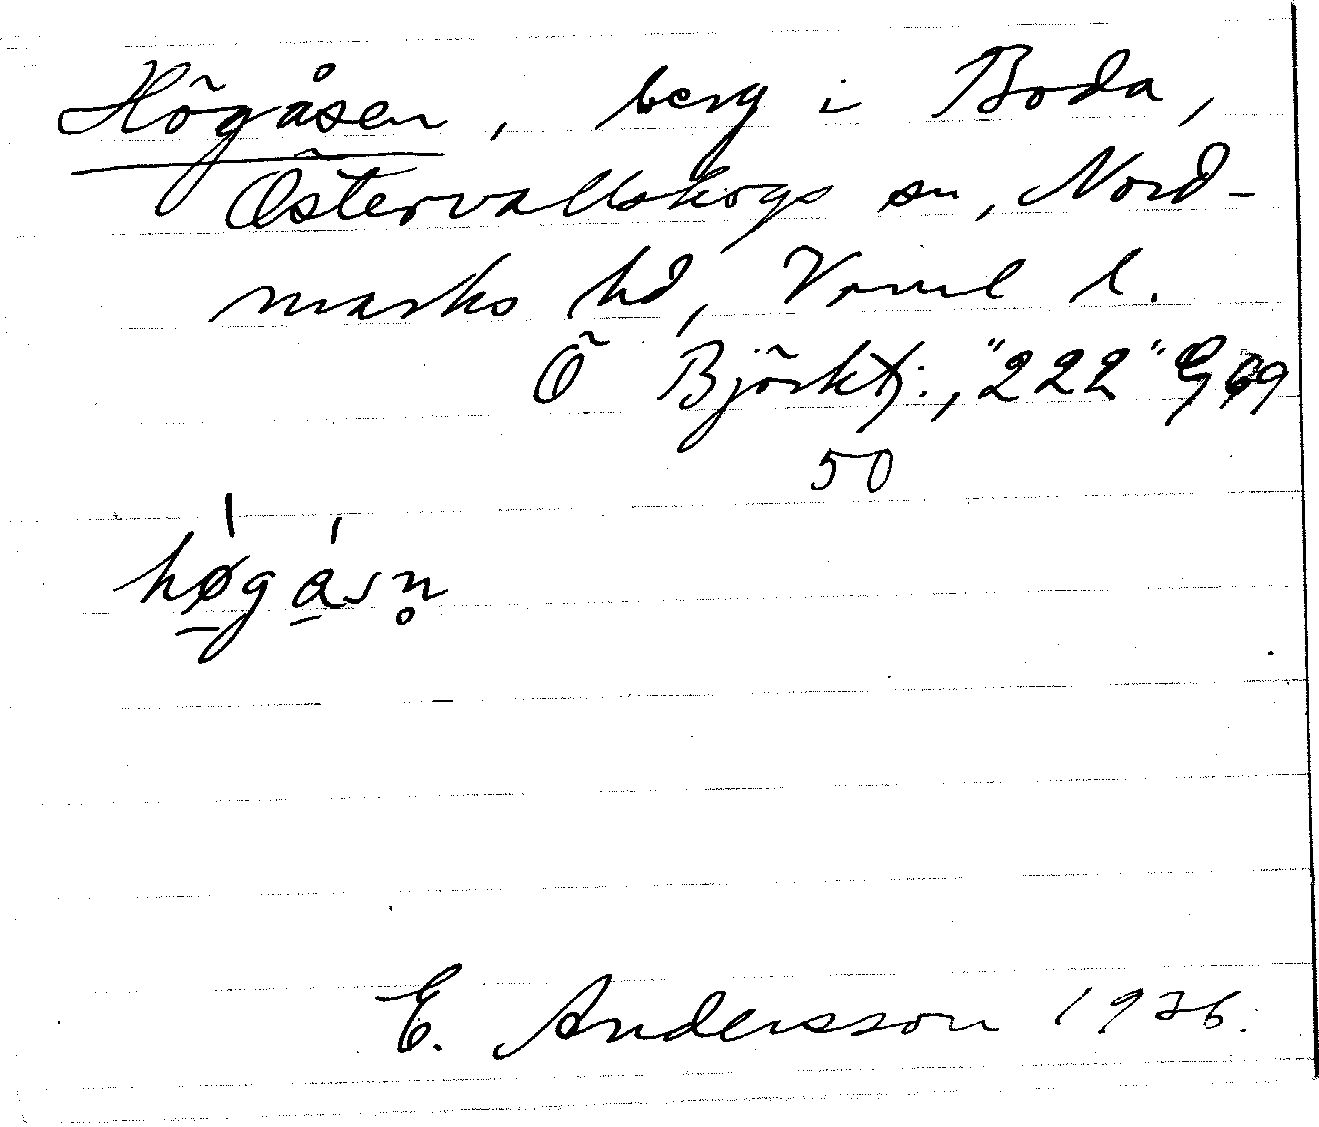 Högåsen, berg i Boda,
Östervallskogs sn, Nord-
marks hd, Vrml l.
Ö Björktj:, "222" G 69
50
høgåsn̥
E. Andersson 1926.